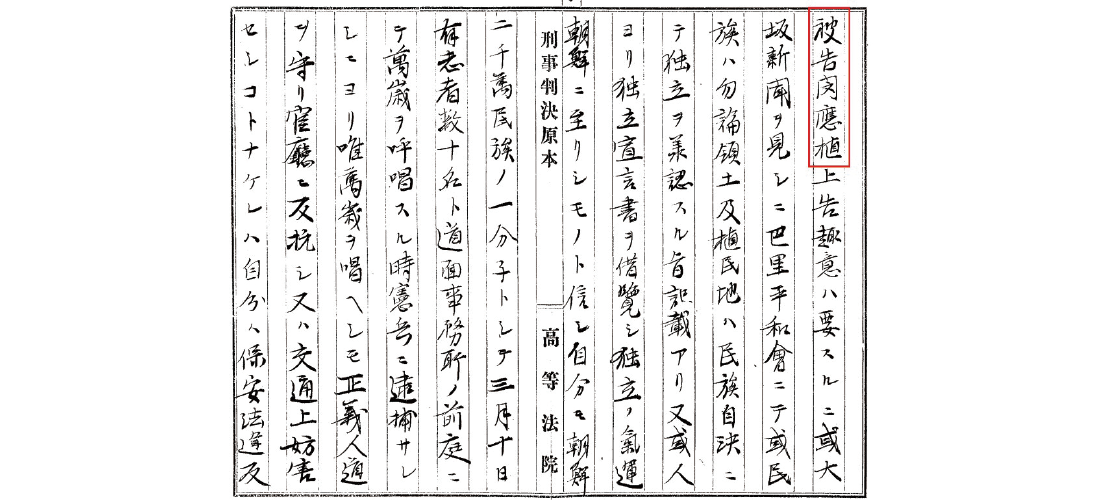 被告閔應植上告趣意ハ要スルニ或大
坂新聞ヲ見シニ巴里平和會ニテ或民
族ハ勿論領土及植民地ハ民族自決ニ
テ独立ヲ承認スル旨記載アリ又或人
ヨリ独立宣言書ヲ借覽シ独立ノ氣運
朝鮮ニ至リシモノト信シ自分モ朝鮮
刑事判決原本 高等法院
二千萬民族ノ一分子トシテ三月十日
有志者数十名ト道面事務所ノ前庭ニ
テ萬歳ヲ呼唱スル時憲兵ニ逮捕サレ
シニヨリ唯萬歳ヲ唱ヘシモ正義人道
ヲ守リ官廳ニ反抗シ又ハ交通上妨害
セシコトナケレハ自分ハ保安法違反